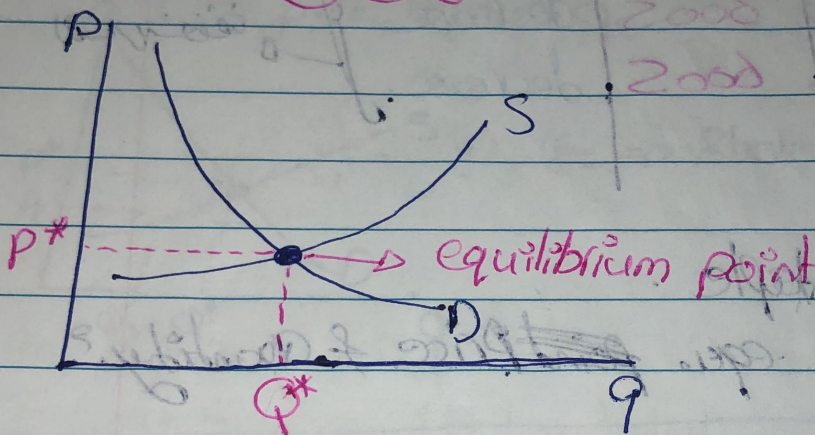 P
S
P*
equilibrium point
D
Q*
q